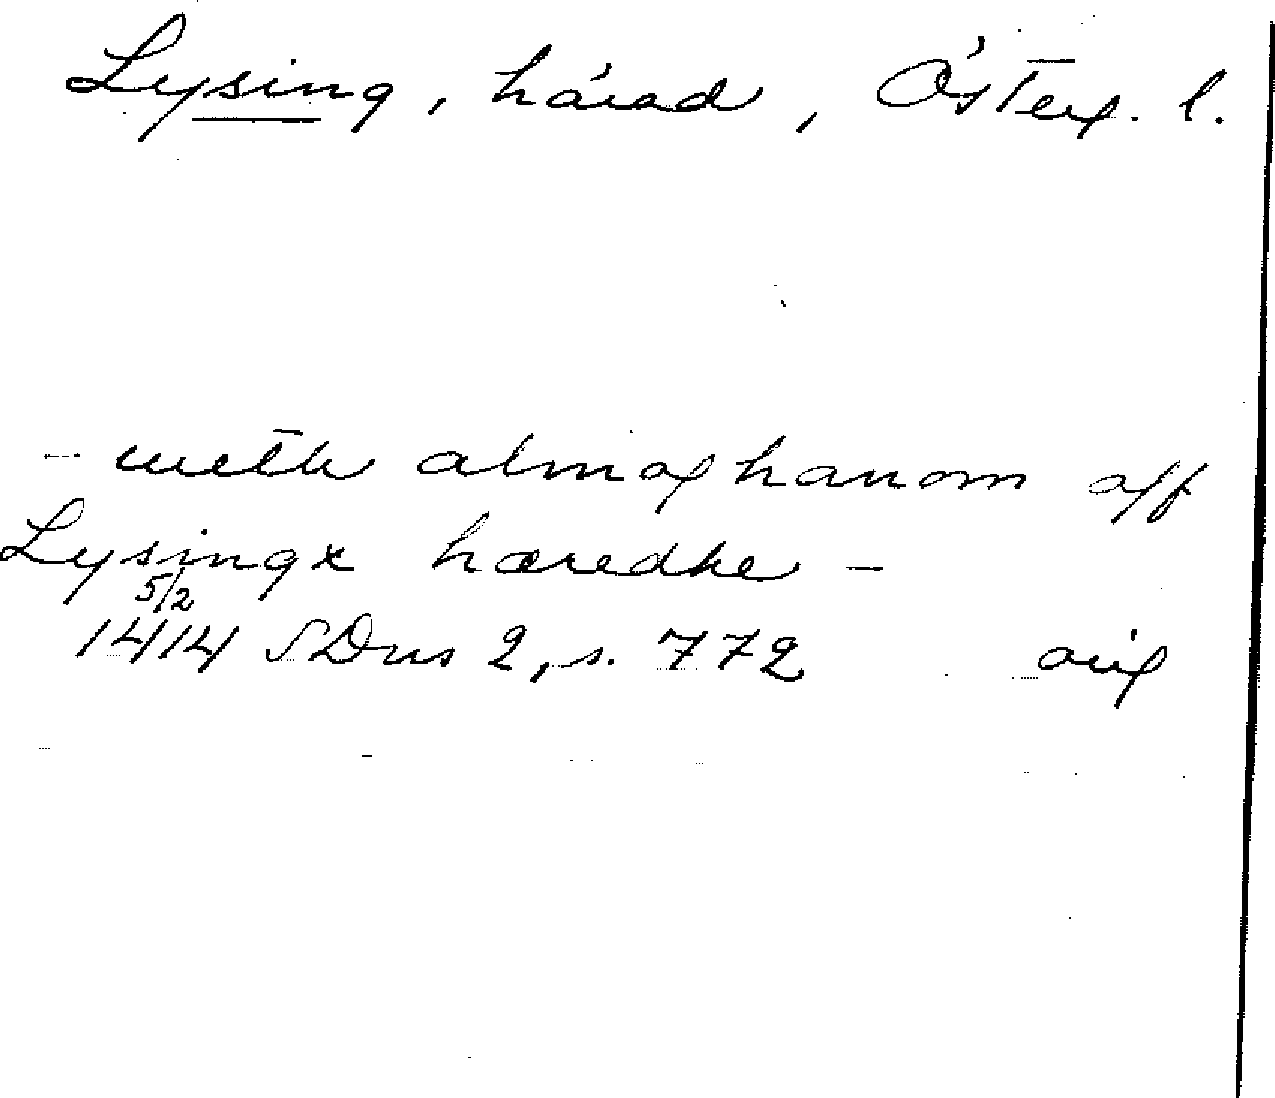 Lysing, härad, Österg. l.
- with almoghanom aff
Lysingx hæredhe -
5/2
1414 SDns 2, s. 772 orig